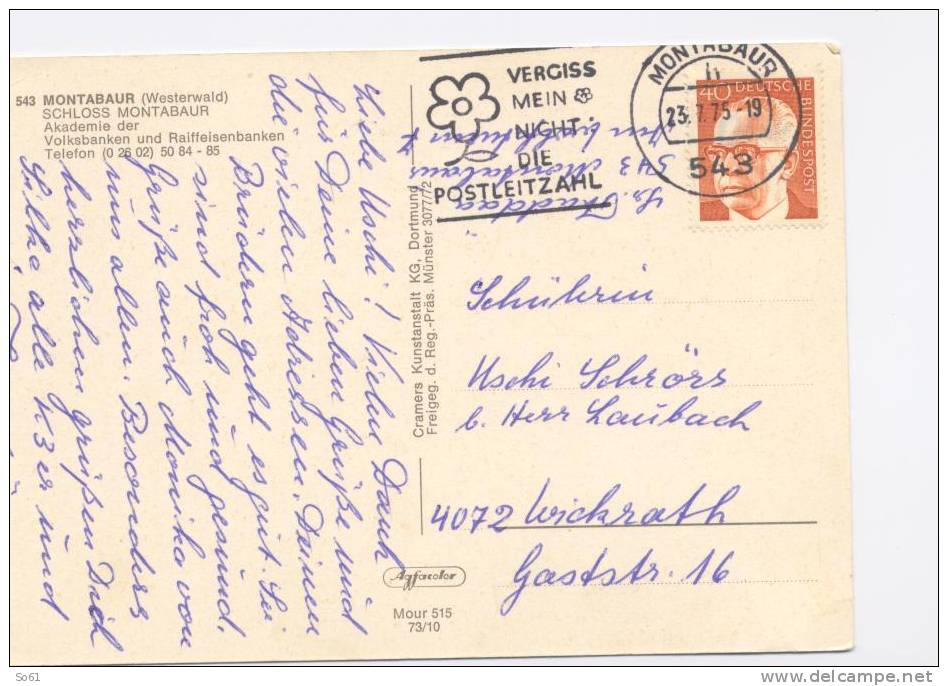 543 MONTABAUR (Westerwald)
SCHLOSS MONTABAUR
Akademie der
Volksbanken und Raiffeisenbanken
Telefon (0 26 02) 50 84 - 85
Liebe Uschi! Vielen Dank
für Deine lieben Grüße und
die vielen Adressen. Deinen
Brüdern geht es gut. Sie
sind froh und gesund.
Grüße auch Monika von
uns allen. Besonders
herzlichen grüßen Dich
Silka alle K3 er und
Cramers Kunstanstalt KG, Dortmund
Freigeg. d. Reg.-Präs. Münster 3077/72
VERGISS
MEIN
NICHT:
DIE
POSTLEITZAHL
MONTABAUR
h
23.7.75-19
543
40 DEUTSCHE BUNDESPOST
543 Montabaur
Schülerin
Uschi Schrörs
b. Herr Laubach
4072 Wickrath
Gaststr. 16
Agfacolor
Mour 515
73/10
So61
www.delcampe.net